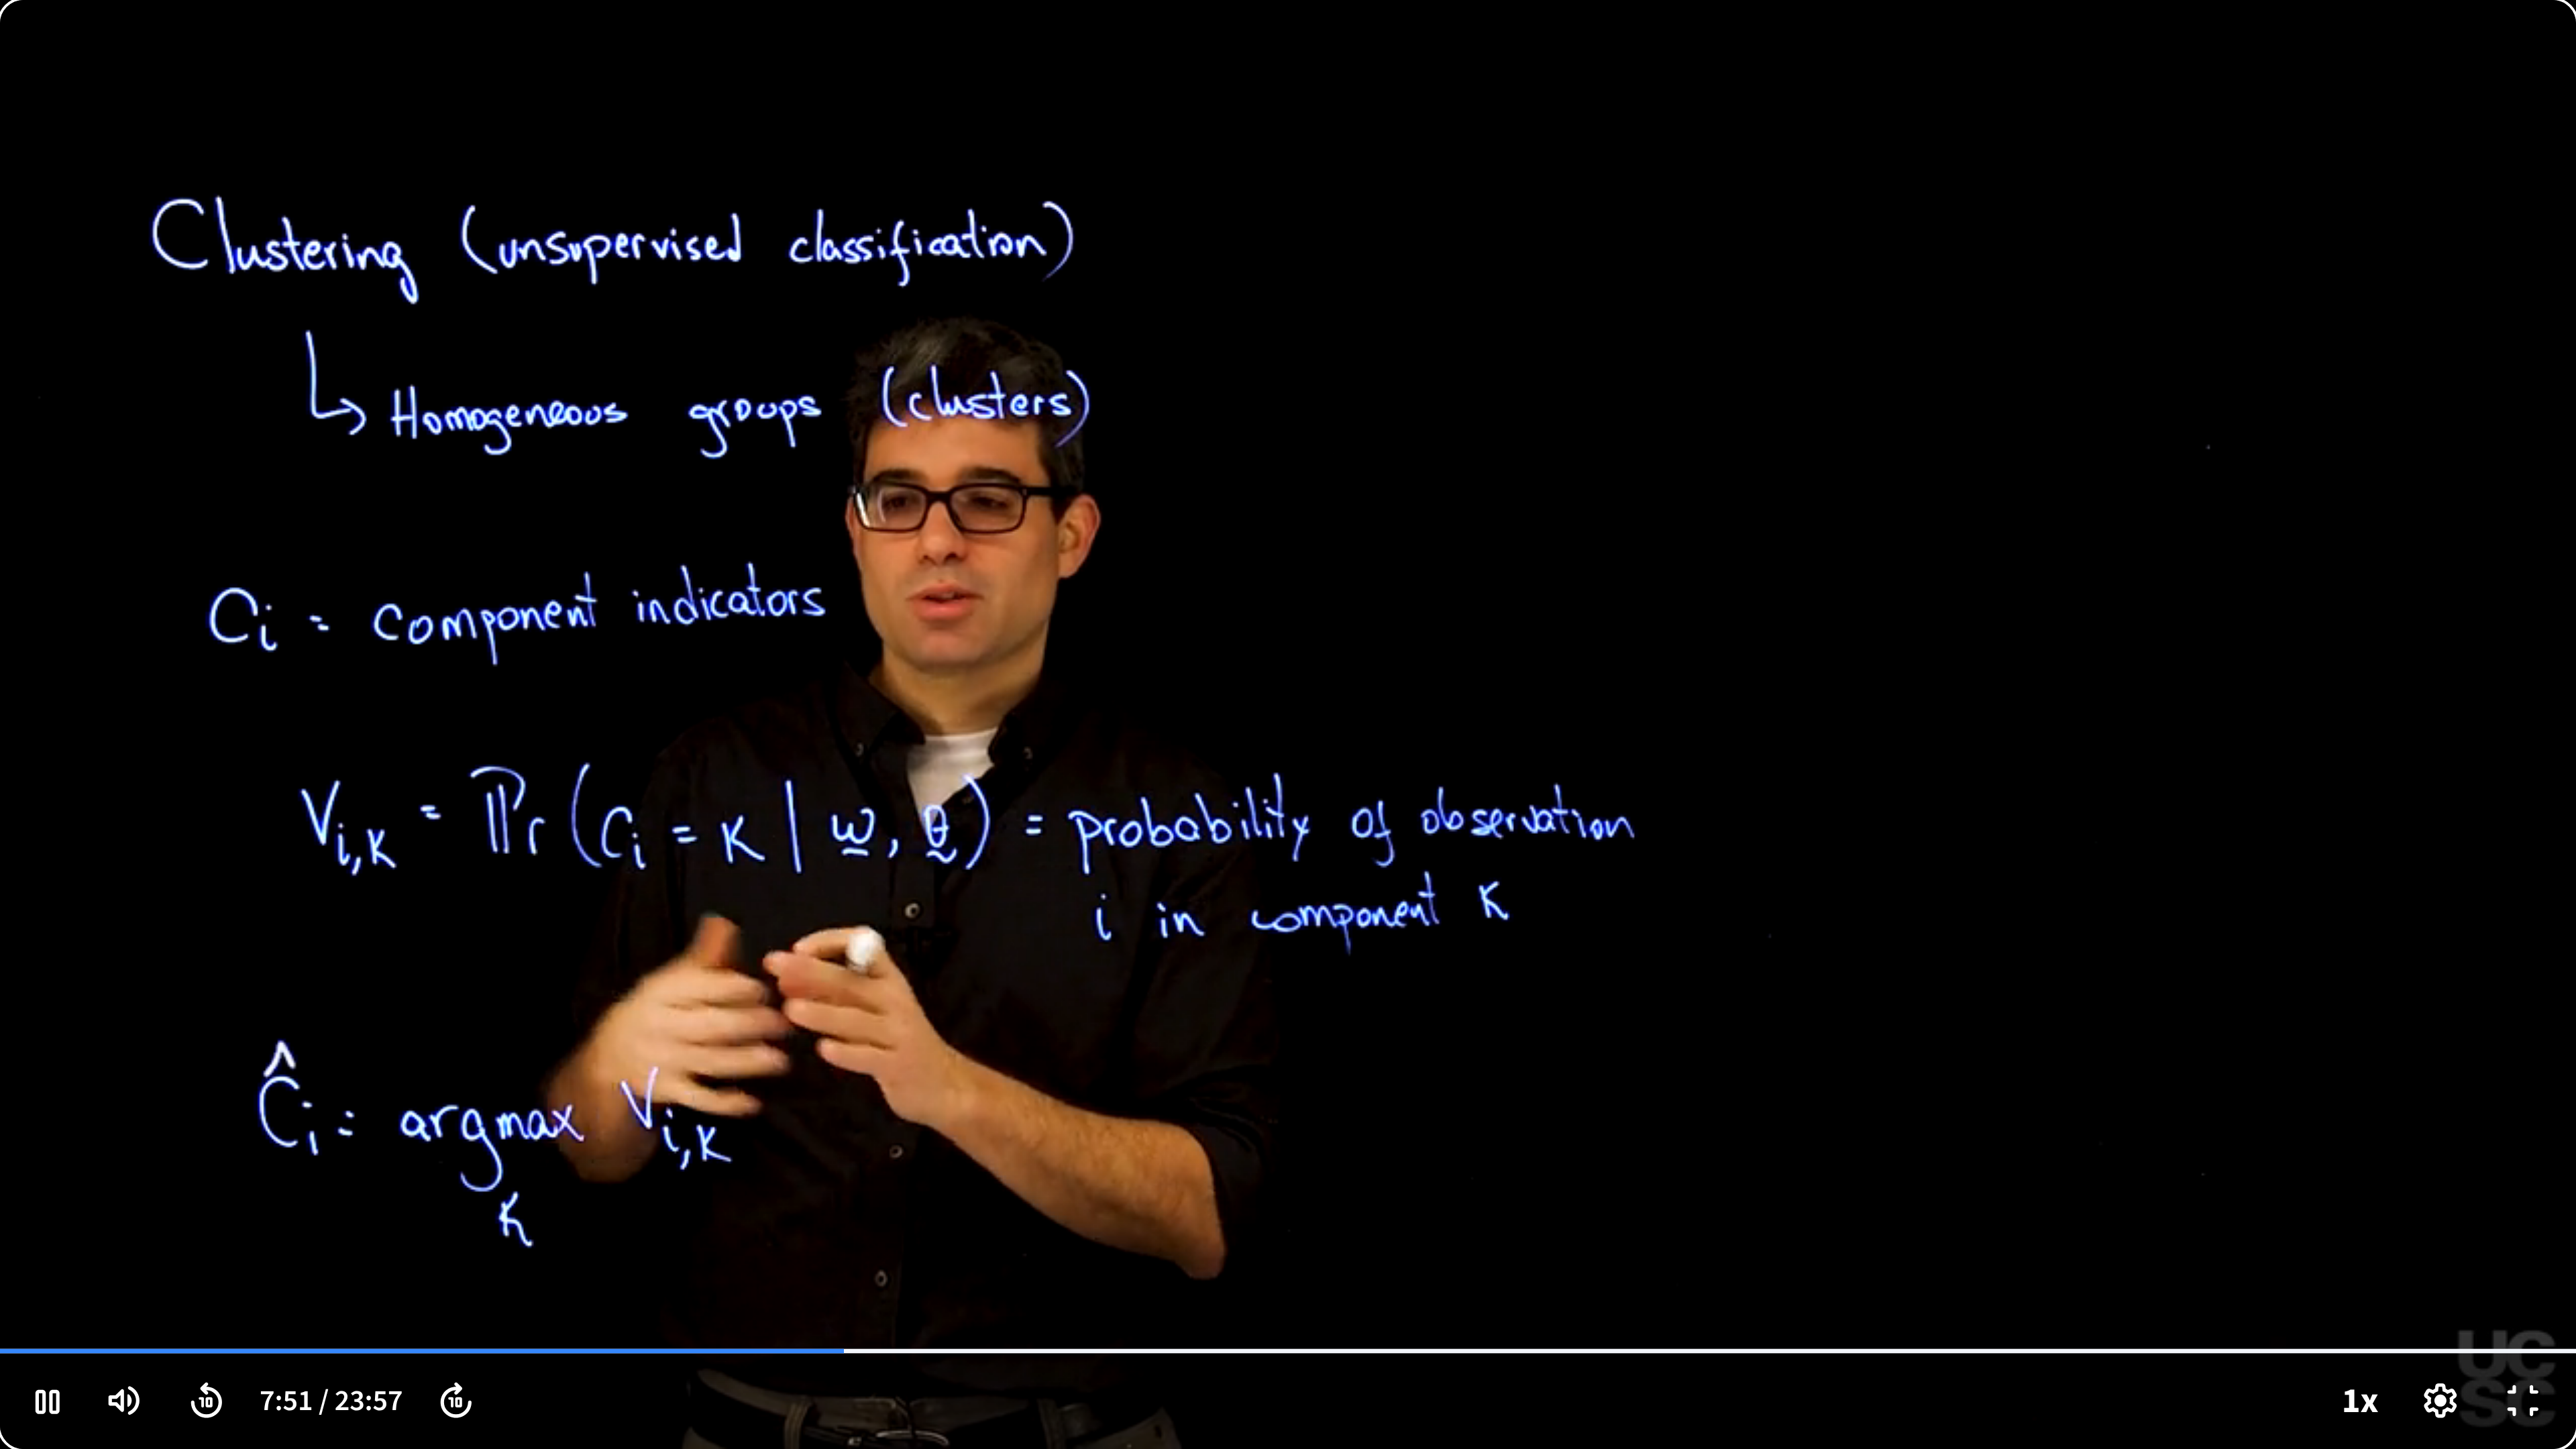 Clustering (unsupervised classification)
↳ Homogeneous groups (clusters)
Ci = component indicators
Vi,K = Pr(Ci = K | w, θ) = probability of observation
i in component K
Ĉi = argmax Vi,K
K
7:51 / 23:57
1x
UC
SC